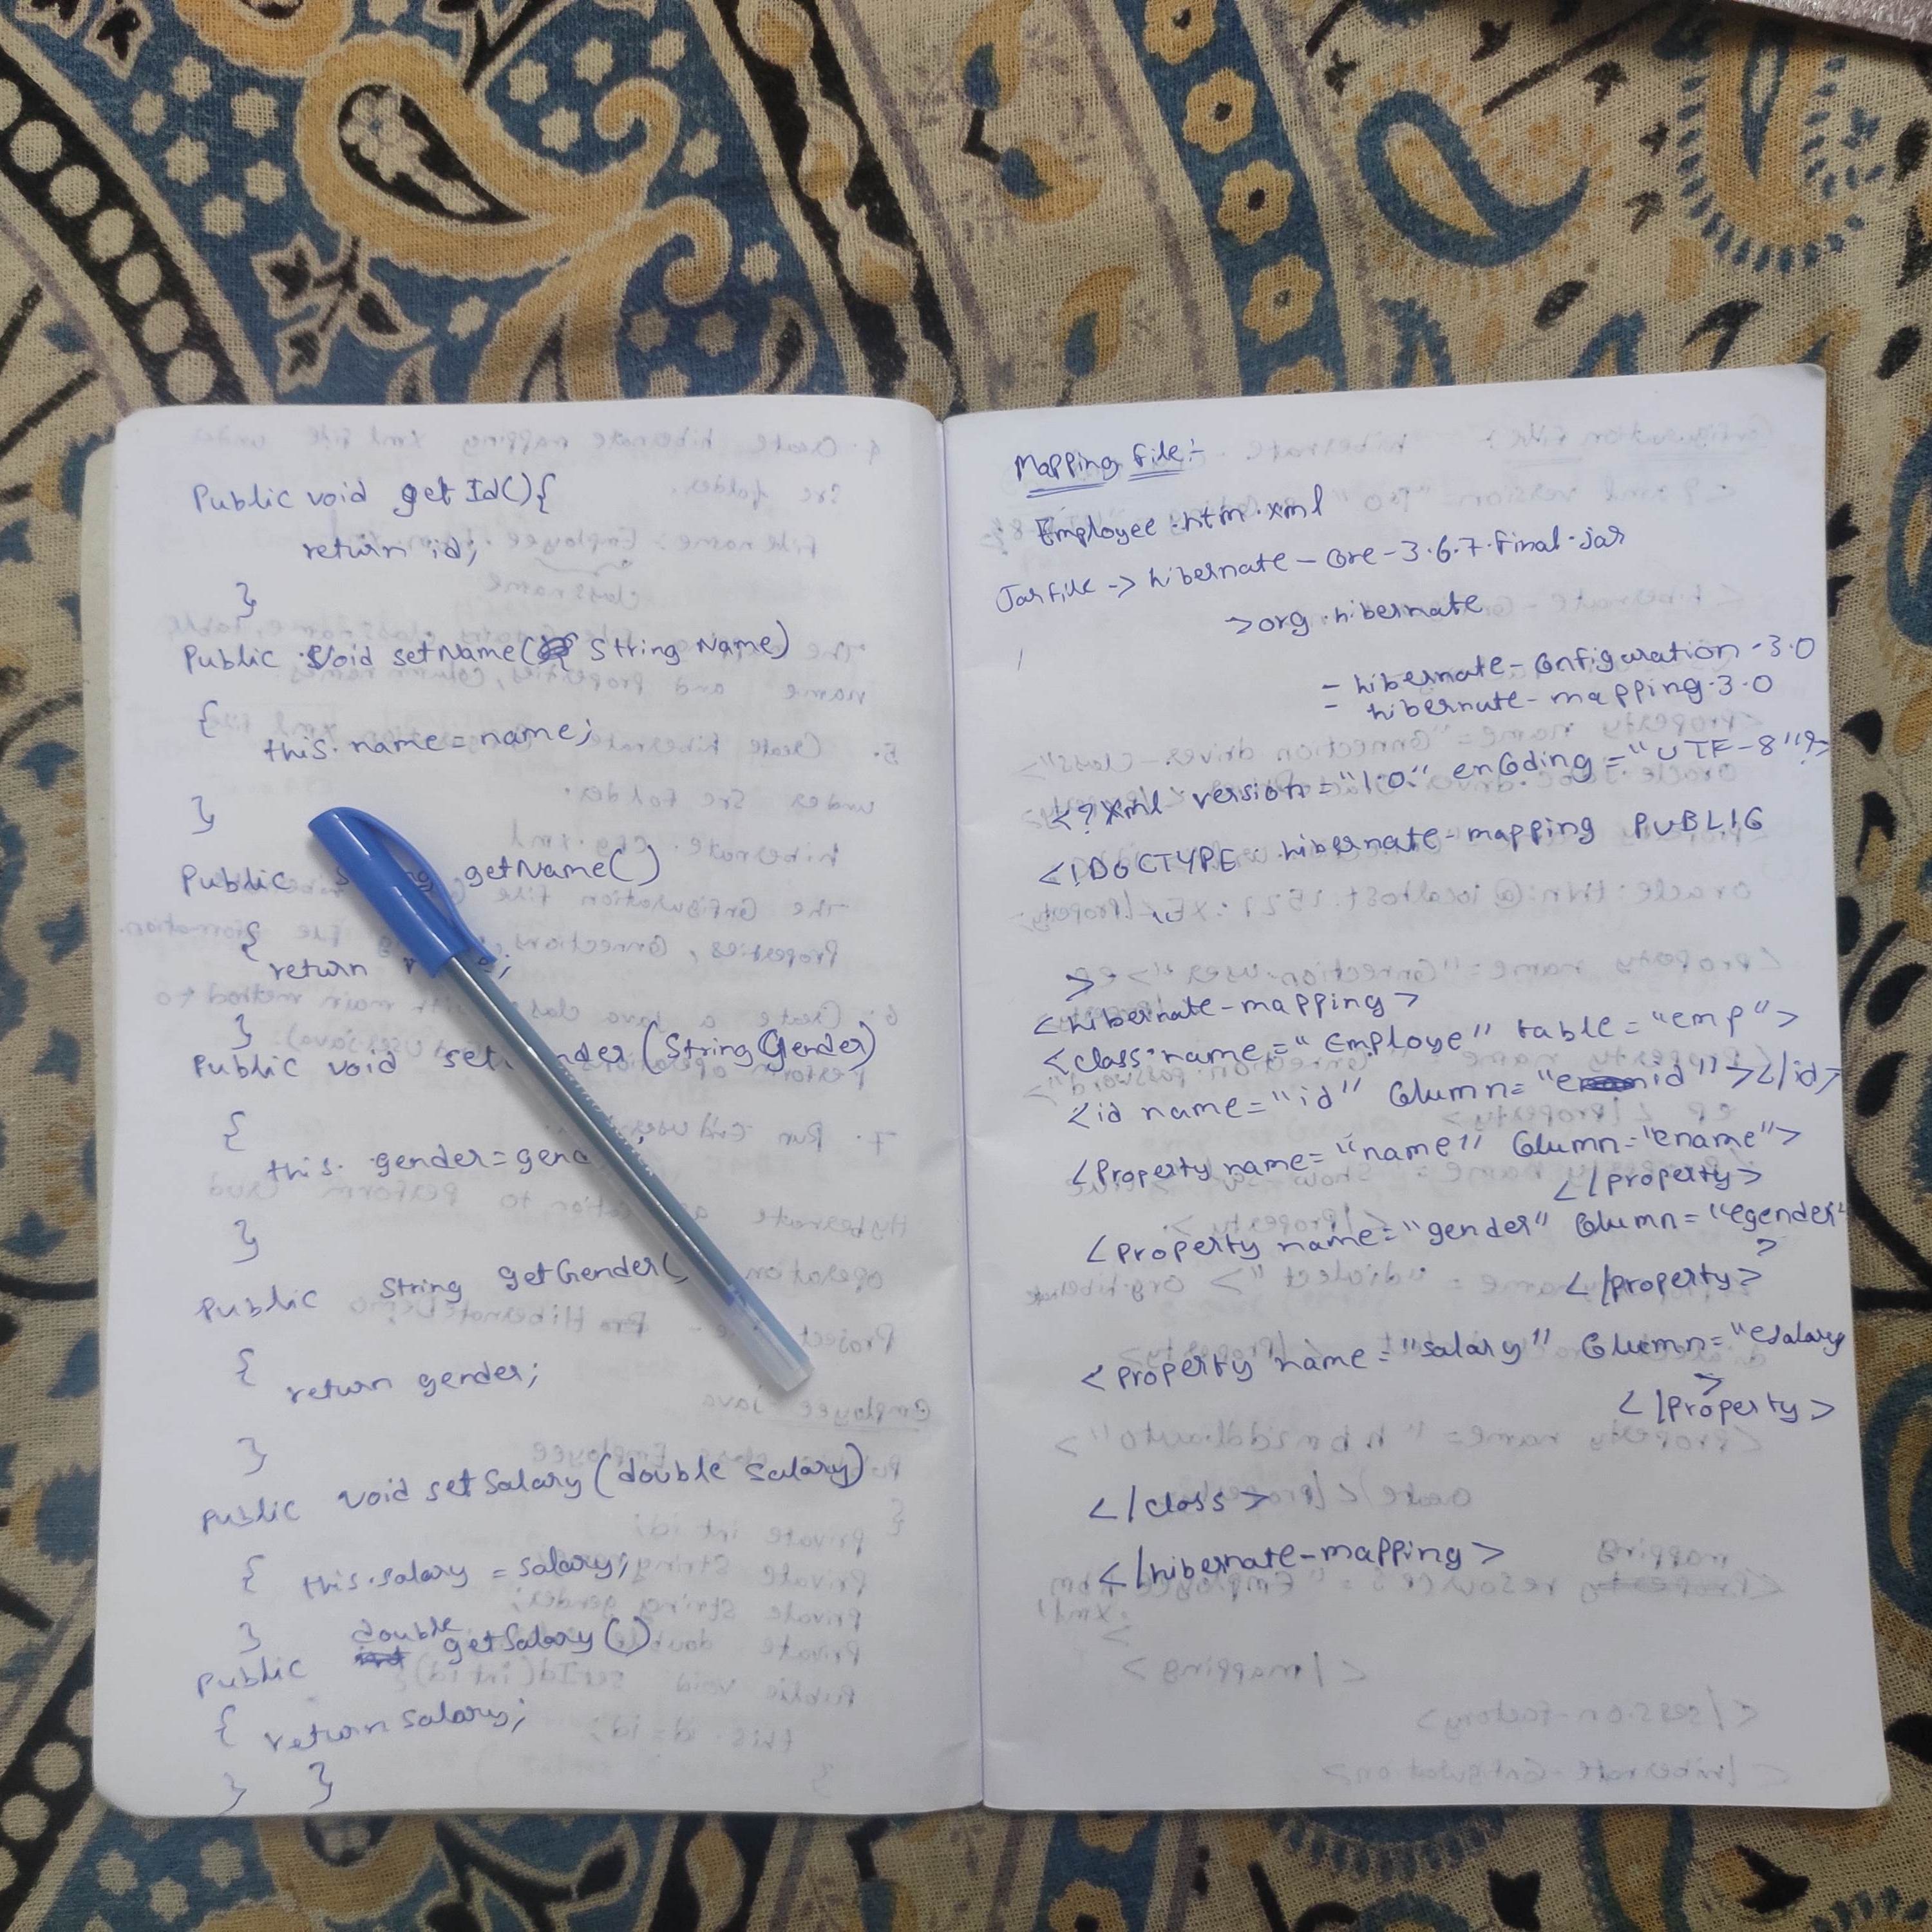 Public void getId(){
return id;
}
Public Void setName( String Name)
{
this.name=name;
}
Public getName()
{
return ;
}
Public void (String Gender)
{
this. gender=
}
Public String getGender(
{
return gender;
}
Public void setSalary (double salary)
{ this.salary = salary;
}
Public double getSalary ()
{ return salary;
} }
Mapping File:-
Employee.htm.xml
Jar file -> hibernate-Core-3.6.7.Final.jar
> org.hibernate
- hibernate-Configuration-3.0
- hibernate-mapping.3.0
<?Xml version="1.0." encoding="UTF-8"?>
<!DOCTYPE hibernate-mapping PUBLIC
>
<hibernate-mapping>
<class name="Employe" table="emp">
<id name="id" Column="eid"></id>
<Property name="name" Column="ename">
</property>
<Property name="gender" Column="egender"
>
</property>
<Property name="salary" Column="esalary
>
</Property>
</class>
</hibernate-mapping>